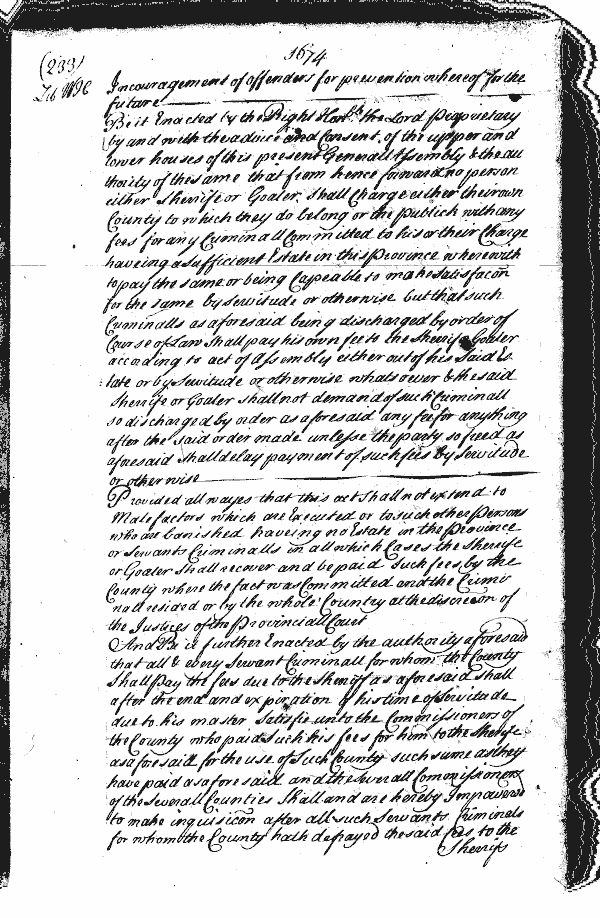 1674
(233)
Lib WH&L
Incouragement of offenders for prevention whereof for the
future
Be it Enacted by the Right Hon.ble the Lord Propretary
by and with the advice and Consent of the upper and
lower houses of this present Generall Assembly & the au
thority of the same that from hence forward no person
either Sherriffe or Goaler, shall Charge either their own
County to which they do belong or the publick with any
fees for any Criminall Committed to his or their Charge
haveing a sufficient Estate in this Province wherewith
to pay the same or being Capeable to make satisfacon
for the same by servitude or otherwise but that such
Criminalls as aforesaid being discharged by order of
Course of Law shall pay his own fee to the Sherriffe Goaler
according to act of Assembly either out of his said Es
tate or by Servitude or otherwise whatsoever & the said
Sherriffe or Goaler shall not demand of such Criminall
so discharged by order as aforesaid any fee for anything
after the said order made unlesse the party so freed as
aforesaid shall delay payment of such fees by Servitude
or otherwise
Provided allwayes that this act shall not extend to
Malefactors which are Executed or to such other Persons
who are banished haveing no Estate in the Province
or Servants Criminalls in all which Cases the Sherriffe
or Goaler shall recover and be paid such fees by the
County where the fact was Committed and the Crimi
nall resided or by the whole Country at the discrecon of
the Justices of the Provinciall Court
And Be it further Enacted by the authority aforesaid
that all & every Servant Criminall for whom the County
shall pay the fees due to the Sheriff as aforesaid shall
after the end and expiration of his time of Servitude
due to his master Satisfie unto the Commissioners of
the County who paid such his fees for him to the Sherriffe
as aforesaid for the use of such County such sume as they
have paid as aforesaid and the severall Commissioners
of the severall Counties shall and are hereby Impowered
to make inquisicon after all such Servants Criminals
for whom the County hath defrayed the said fees to the
Sherriffs